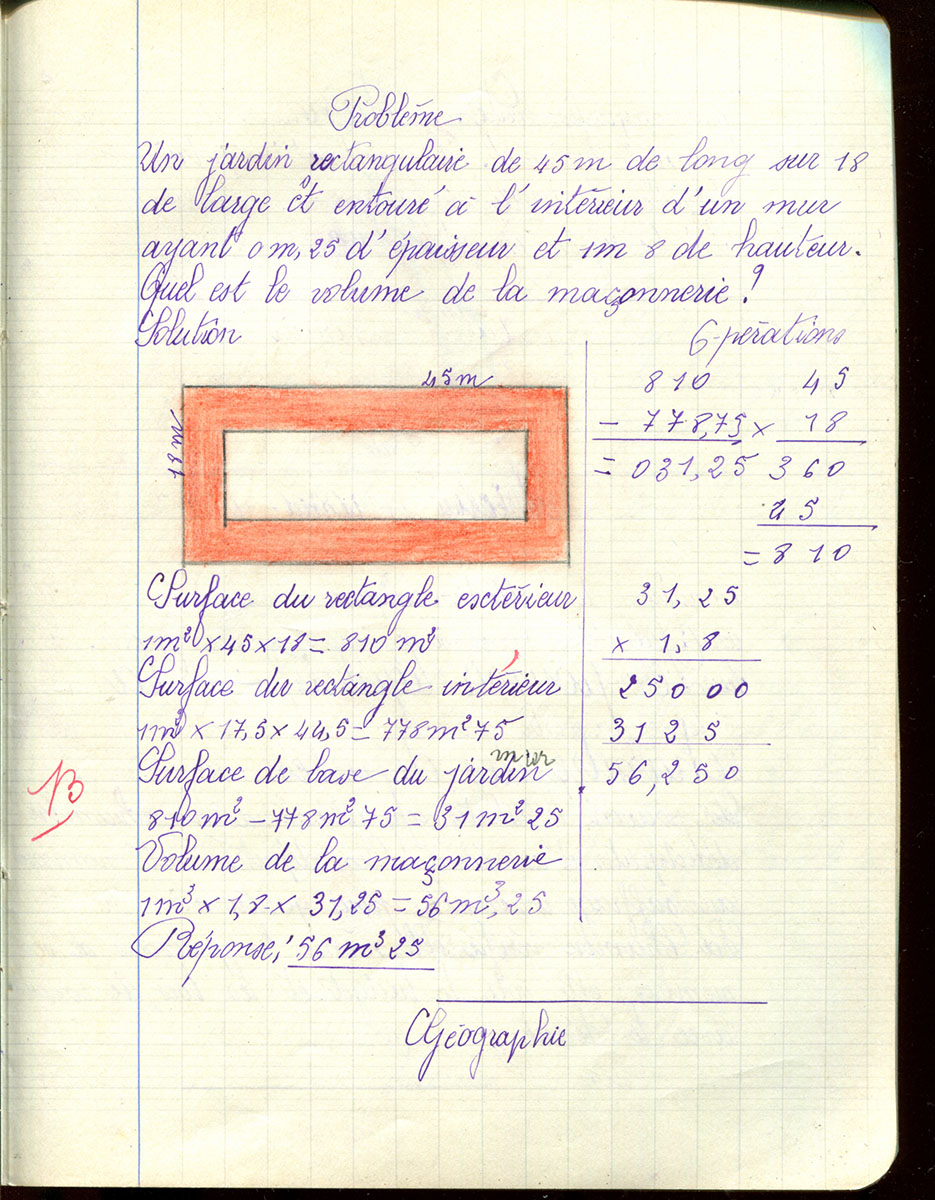 Problème
Un jardin rectangulaire de 45m de long sur 18
de large et entouré à l'intérieur d'un mur
ayant 0m,25 d'épaisseur et 1m 8 de hauteur.
Quel est le volume de la maçonnerie?
Solution
Opérations
45m
18m
810
- 778,75
= 031,25
4,5
× 18
360
45
= 810
Surface du rectangle esctérieur
1m² × 45 × 18 = 810 m²
Surface du rectangle intérieur
1m² × 17,5 × 44,5 = 778m² 75
mur
Surface de base du jardin
810m² - 778m² 75 = 31m² 25
Volume de la maçonnerie
1m³ × 1,8 × 31,25 = 56m³,25
Réponse: 56 m³ 25
31,25
× 1,8
25000
3125
56,250
B
Géographie